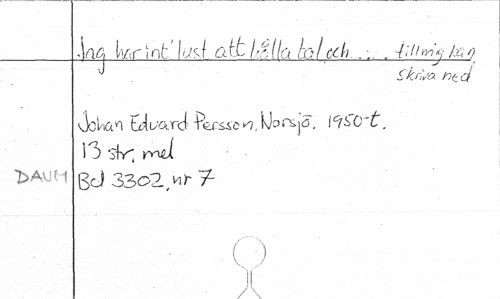 Jag har int' lust att hålla tal och ... till mig kan
skriva ned
Johan Edvard Persson, Norsjö. 1950-t.
13 str, mel
DAUM Bd 3302, nr 7